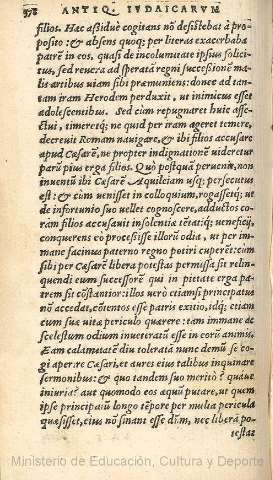 978 ANTIQ. IVDAICARVM
filios. Hac assiduè cogitans nõ desistebat à pro-
posito: & absens quoq; per literas exacerbaba
patrẽ in eos, quasi de incolumitate ipsius solicit
us, sed reuera ad sperata regni successionẽ ma-
lis artibus uiam sibi præmuniens: donec ad tan-
tam iram Herodem perduxit, ut inimicus esset
adolescentibus. Sed cùm repugnaret huic affe-
ctui, timeretq; ne quid per iram ageret temerè,
decreuit Romam nauigare, & ibi filios accusare
apud Cæsarẽ, ne propter indignationẽ uideretur
parũ pius erga filios. Quò postquã peruenit, non
inuenit ibi Cæsarẽ Aquileiam usq; persecutus
est: & cùm uenisset in colloquium, rogassetq; ut
de infortunio suo uellet cognoscere, adductos co-
ràm filios accusauit insolentiæ tẽtatiq; ueneficij,
conquerens eò processisse illorũ odia, ut per im-
mane facinus paterno regno potiri cuperẽt: cùm
sibi per Cæsarẽ libera potestas permissa sit relin-
quendi eum successorẽ qui in pietate erga pa-
trem sit cõstantior: illos uerò etiamsi principatus
nõ accedat, cõtentos esse patris exitio, idq; etiam
cum suæ uitæ periculo quærere: tam immane ac
scelestum odium inueteratũ esse in eorũ animis.
Eam calamitatẽ diu toleratã nunc demũ se co-
gi aperire Cæsari, et aures eius talibus inquinare
sermonibus: & quo tandem suo merito? quaue
iniuria? aut quomodo eos æquũ putare, ut quem
ipse principatũ longo tẽpore per multa pericula
quæsisset, eius nõ sinant esse dñm, nec liberã po-
testatẽ
Ministerio de Educación, Cultura y Deporte